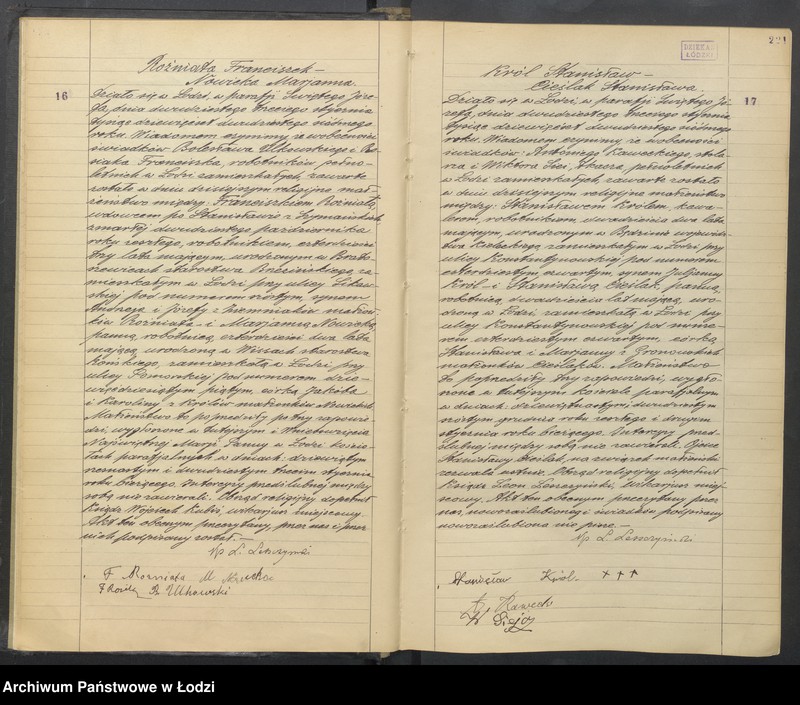 Rożniata Franciszek –
Nowicka Marjanna.
16
Działo się w Łodzi, w parafji Świętego Józe-
fa, dnia dwudziestego trzeciego stycznia
tysiąc dziewięćset dwudziestego siódmego
roku. Wiadomem czynimy, że w obecności
świadków Bolesława Ulkowskiego i
Franciszka, robotników, pełno-
letnich w Łodzi zamieszkałych, zawarte
zostało w dniu dzisiejszym religijne mał-
żeństwo między: Franciszkiem Rożniatą,
wdowcem po Stanisławie z Szymańskich
zmarłej dwudziestego października
roku zeszłego, robotnikiem, czterdzieści
trzy lata mającym, urodzonym w Brato-
szewicach starostwa Brzezińskiego za-
mieszkałym w Łodzi przy ulicy
pod numerem szóstym, synem
Andrzeja i Józefy z Ziemniaków małżon-
ków Rożniata – i Marjanną Nowicką,
panną, robotnicą, czterdzieści dwa lata
mającą urodzoną w starostwa
Konińskiego, zamieszkałą w Łodzi, przy
ulicy Pomorskiej pod numerem dzie-
więćdziesiątym piątym, córką Jakóba
i Karoliny z Królów małżonków Nowickich
Małżeństwo to poprzedziły trzy zapowie-
dzi, wygłoszone w tutejszym i Wniebowzięcia
Najświętszej Marji Panny w Łodzi kościo-
łach parafjalnych w dniach: dziewiątym
szesnastym i dwudziestym trzecim stycznia
roku bieżącego. Intercyzy przedślubnej między
sobą nie zawierali. Obrzęd religijny dopełnił
Ksiądz Wojciech wikarjusz miejscowy.
Akt ten obecnym przeczytany, przez nas i przez
nich podpisany został. –
Xp L. Leszczyński
F Rozniata M Nowicka
B Ulkowski
DZIEKAN
ŁÓDZKI
221
Król Stanisław –
Cieślak Stanisława,
17
Działo się w Łodzi, w parafji Świętego Jó-
zefa, dnia dwudziestego trzeciego stycznia
tysiąc dziewięćset dwudziestego siódmego
roku. Wiadomem czynimy, że w obecności
świadków: Antoniego Kaweckiego, stola-
rza i Wiktora tkacza, pełnoletnich
w Łodzi zamieszkałych, zawarte zostało
w dniu dzisiejszym religijne małżeństwo
między: Stanisławem Królem, kawa-
lerem, robotnikiem, dwadzieścia dwa lata
mającym, urodzonym w Będzinie wojewódz-
twa Kieleckiego, zamieszkałym w Łodzi, przy
ulicy Konstantynowskiej pod numerem
czterdziestym czwartym, synem Juljanny
Król – i Stanisławą Cieślak, panną,
robotnicą, dwadzieścia lat mającą, uro-
dzoną w Łodzi, zamieszkałą w Łodzi przy
ulicy Konstantynowskiej pod nume-
rem czterdziestym czwartym, córką
Stanisława i Marjanny z Gronowskich
małżonków Cieślaków. Małżeństwo
to poprzedziły trzy zapowiedzi, wygło-
szone w tutejszym kościele parafjalnym
w dniach: dziewiętnastym, dwudziestym
szóstym grudnia roku zeszłego i drugim
stycznia roku bieżącego. Intercyzy przed-
ślubnej między sobą nie zawierali. Ojciec
Stanisławy Cieślak, na związek małżeński
zezwala ustnie. Obrzęd religijny dopełnił
Ksiądz Leon Leszczyński, wikarjusz miej-
scowy. Akt ten obecnym przeczytany przez
nas, nowozaślubionego i świadków podpisany
nowozaślubiona nie pisze. –
Xp L. Leszczyński
Stanisław Król. +++
Kawecki
W
Archiwum Państwowe w Łodzi